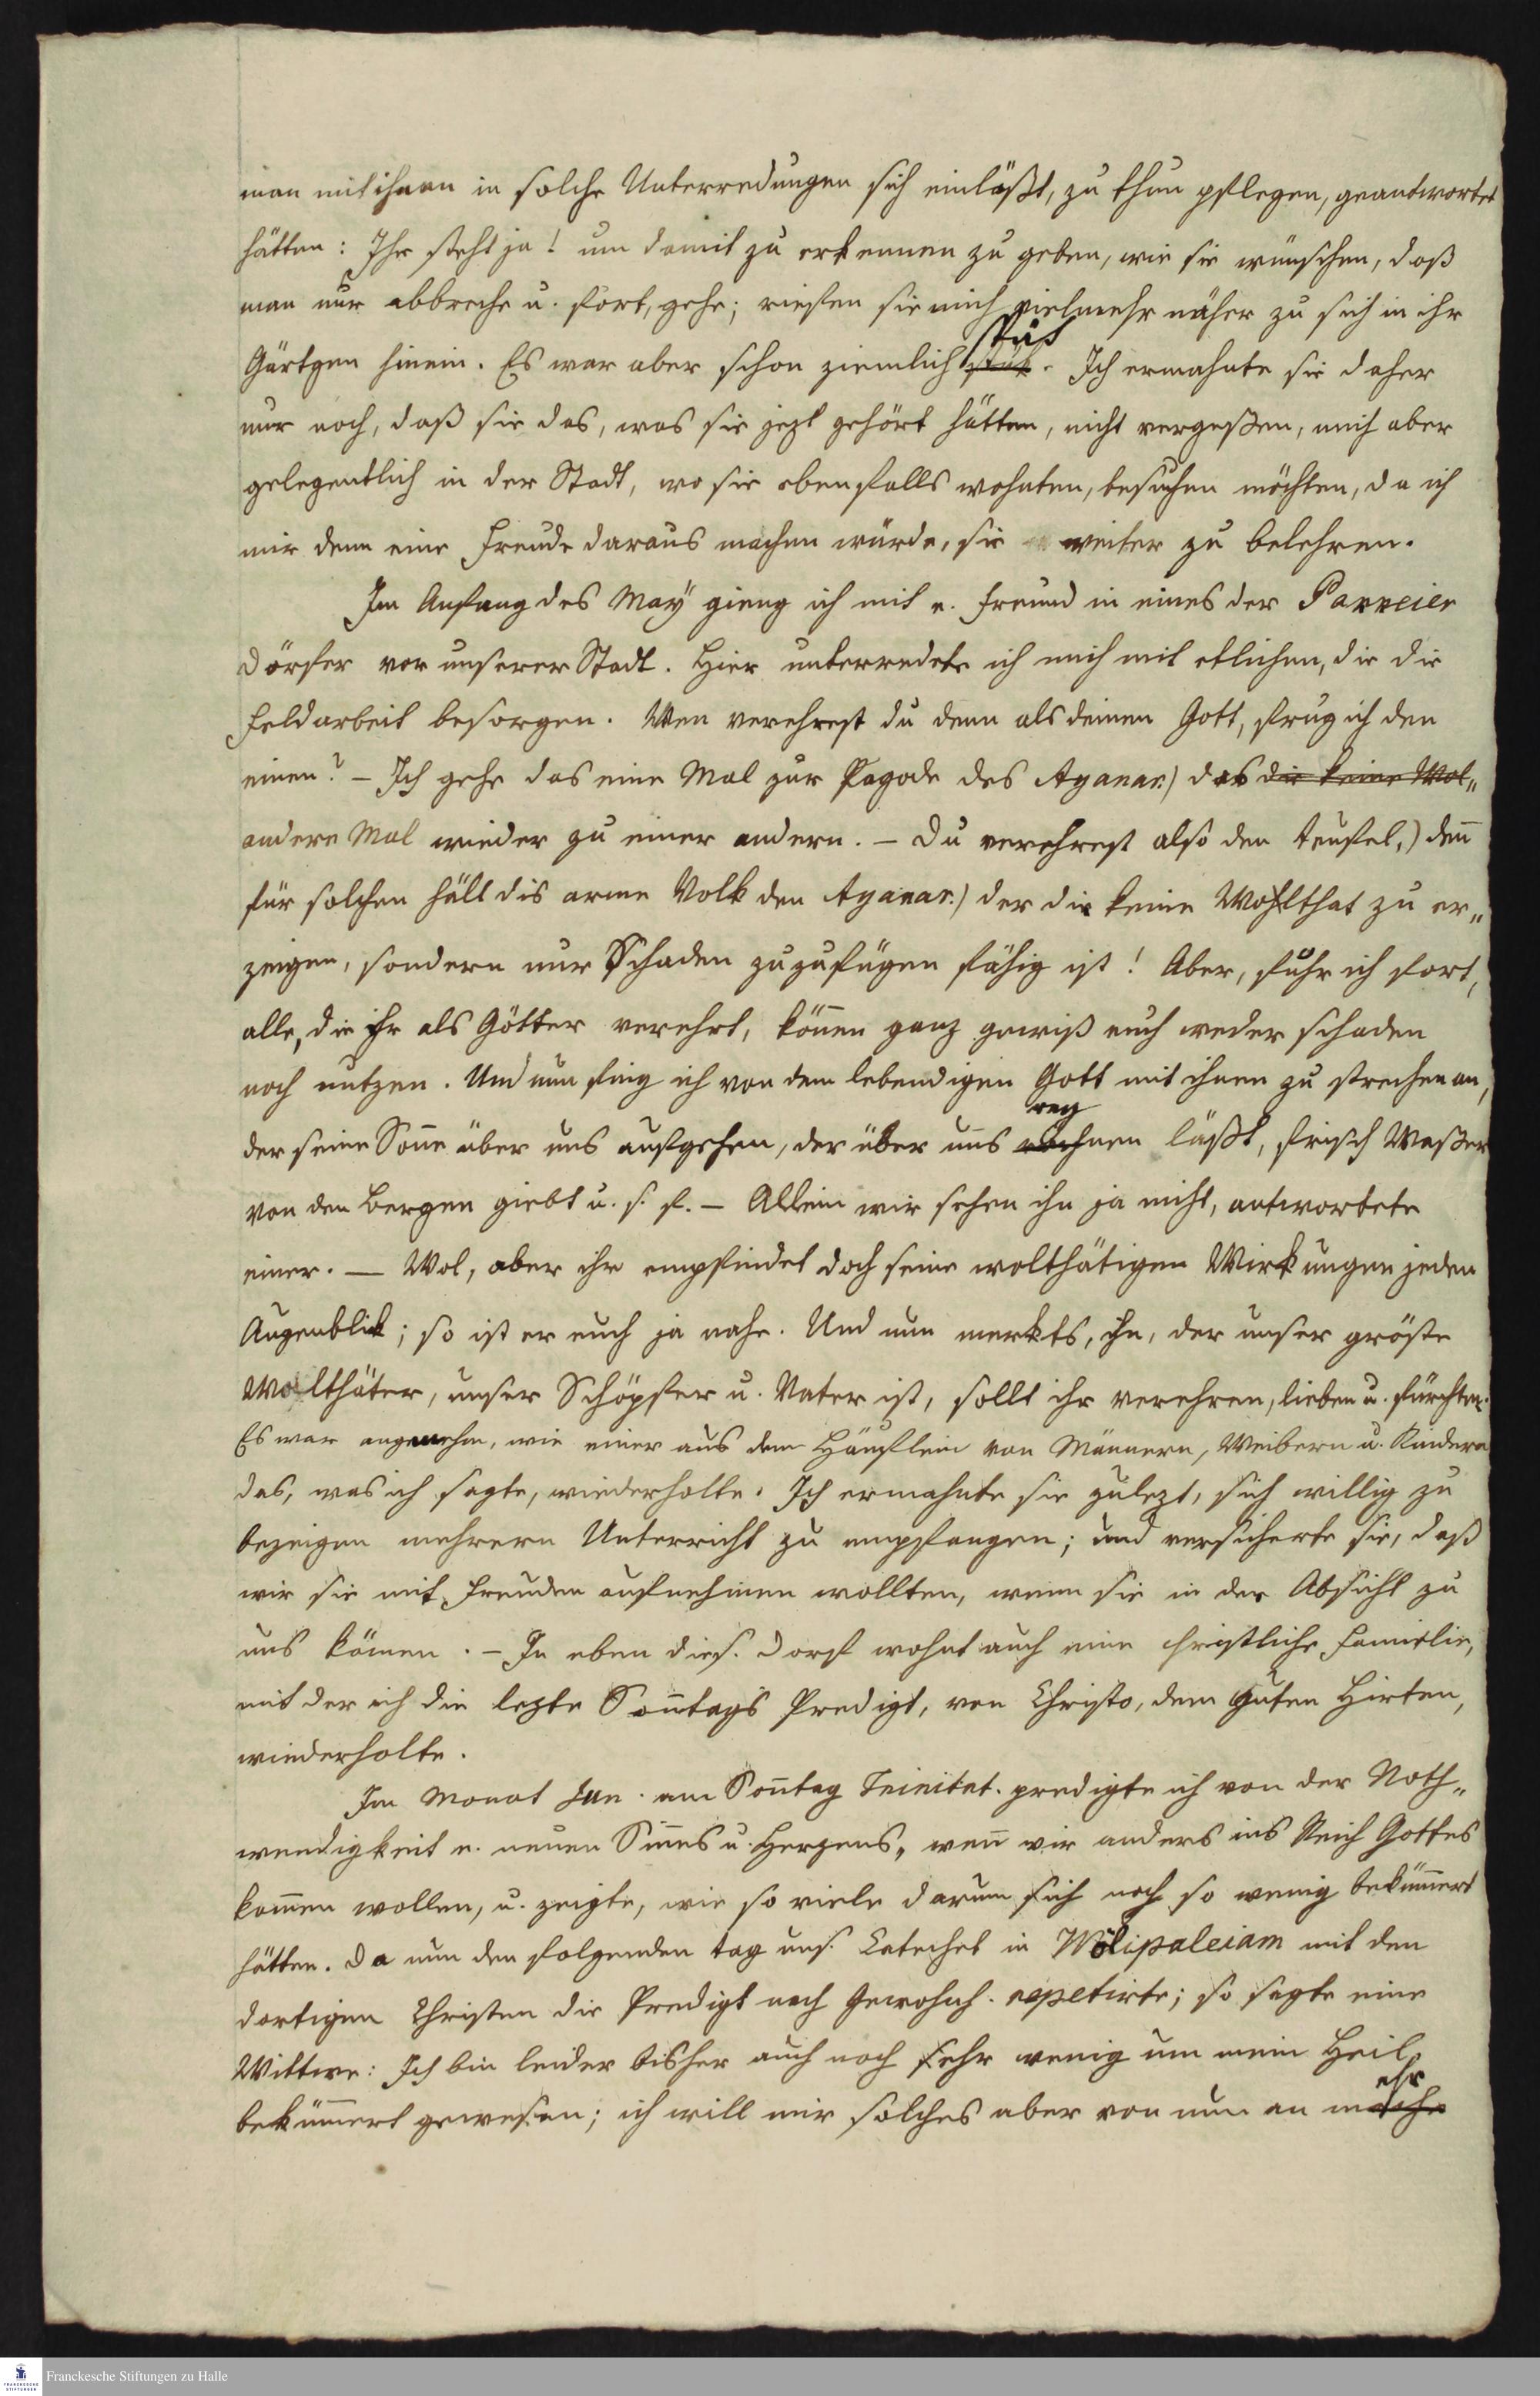 man mit ihnen in solche Unterredungen sich einläßt, zu thun pflegen, geantwortet
hätten: Ihr steht ja! um damit zu erkennen zu geben, wie sie wünschen, daß
man nur abbreche u. fort, gehe; riefen sie mich vielmehr näher zu sich in ihr
Gärtgen hinein. Es war aber schon ziemlich spät. Ich ermahnte sie daher
nur noch, daß sie das, was sie jezt gehört hätten, nicht vergeßen, mich aber
gelegentlich in der Stadt, wo sie ebenfalls wohnten, besuchen möchten, da ich
mir denn eine Freude daraus machen würde, sie weiter zu belehren.
Im Anfang des May gieng ich mit e. Freund in eines der Parreier
Dörfer vor unserer Stadt. Hier unterredete ich mich mit etlichen, die die
Feldarbeit besorgen. Wen verehrest du denn als deinen Gott, frug ich den
einen? – Ich gehe das eine Mal zur Pagode des Ayanar.) das die keine Wol„
andere Mal wieder zu einer andern. – Du verehrest also den Teufel,) deñ
für solchen hält dis arme Volk den Ayanar.) der dir keine Wohlthat zu er„
zeigen, sondern nur Schaden zuzufügen fähig ist! Aber, fuhr ich fort,
alle, die ihr als Götter verehrt, köñen ganz gewiß euch weder schaden
noch nutzen. Und nun fing ich von dem lebendigen Gott mit ihnen zu sprechen an,
der seine Soñe über uns aufgehen, der über uns regnen läßt, frisch Waßer
von den Bergen giebt u. s. f. – Allein wir sehen ihn ja nicht, antwortete
einer. — Wol, aber ihr empfindet doch seine wolthätigen Wirkungen jeden
Augenblik; so ist er euch ja nahe. Und nun merkts, ihn, der unser gröste
Wolthäter, unser Schöpfer u. Vater ist, sollt ihr verehren, lieben u. fürchten.
Es war angenehm, wie einer aus dem Häuflein von Männern, Weibern u. Kindern
das, was ich sagte, wiederholte. Ich ermahnte sie zulezt, sich willig zu
bezeigen mehrern Unterricht zu empfangen; und versicherte sie, daß
wir sie mit Freuden aufnehmen wollten, wenn sie in der Absicht zu
uns kämen. – In eben dies. Dorf wohnt auch eine christliche Familie,
mit der ich die lezte Soñtags Predigt, von Christo, dem guten Hirten,
wiederholte.
Im Monat Jun. am Soñtag Trinitat. predigte ich von der Noth„
wendigkeit e. neuen Siñes u. Herzens, weñ wir anders ins Reich Gottes
kom̃en wollen, u. zeigte, wie so viele darum sich noch so wenig beküm̃ert
hätten. Da nun den folgenden Tag uns. Catechet in Wölipaleiam mit den
dortigen Christen die Predigt nach Gewohnh. repetirte; so sagte eine
Wittwe: Ich bin leider bisher auch noch sehr wenig um mein Heil
beküm̃ert gewesen; ich will mir solches aber von nun an mehr